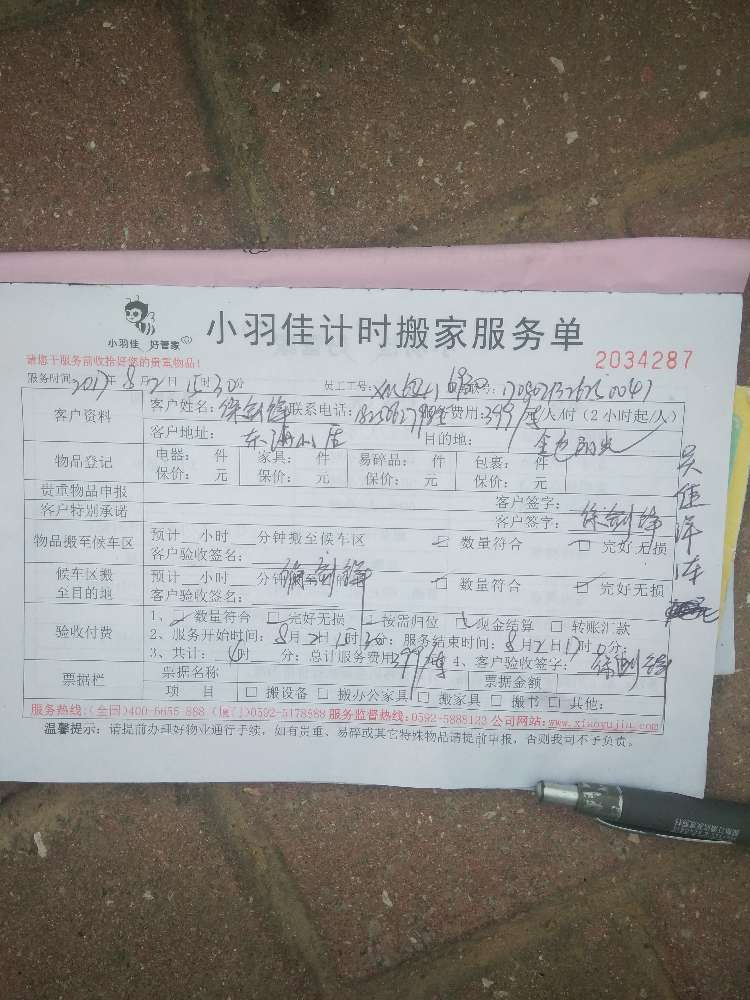 小羽佳 好管家
小羽佳计时搬家服务单
请您于服务前收拾好您的贵重物品!
2034287
服务时间 2017年8月2日 15时30分 员工工号:
客户资料 客户姓名: 联系电话: 费用:399/车/人/时(2小时起/人)
客户地址: 东海 目的地: 金色
物品登记 电器: 件 家具: 件 易碎品: 件 包裹: 件
保价: 元 保价: 元 保价: 元 保价: 元
贵重物品申报 客户签字:
客户特别承诺 客户签字: 徐剑锋
物品搬至候车区 预计__小时__分钟搬至候车区 数量符合 □ 完好无损
客户验收签名:
候车区搬至目的地 预计__小时__分钟 □ 数量符合 完好无损
客户验收签名: 徐剑锋
吴佳洋车
验收付费 1、数量符合 □ 完好无损 按需归位 现金结算 □ 转账汇款
2、服务开始时间:8月2日 时 分;服务结束时间:8月2日17时0分;
3、共计: 时 分;总计服务费用399/车 4、客户验收签字: 徐剑锋
票据栏 票据名称 票据金额
项 目 □ 搬设备 □ 搬办公家具 □ 搬家具 □ 搬书 □ 其他:
服务热线:(全国)400-6655-888 (厦门)0592-5178888 服务监督热线:0592-5888123 公司网站:www.xiaoyujia.com
温馨提示:请提前办理好物业通行手续,如有贵重、易碎或其它特殊物品请提前申报,否则我司不予负责。